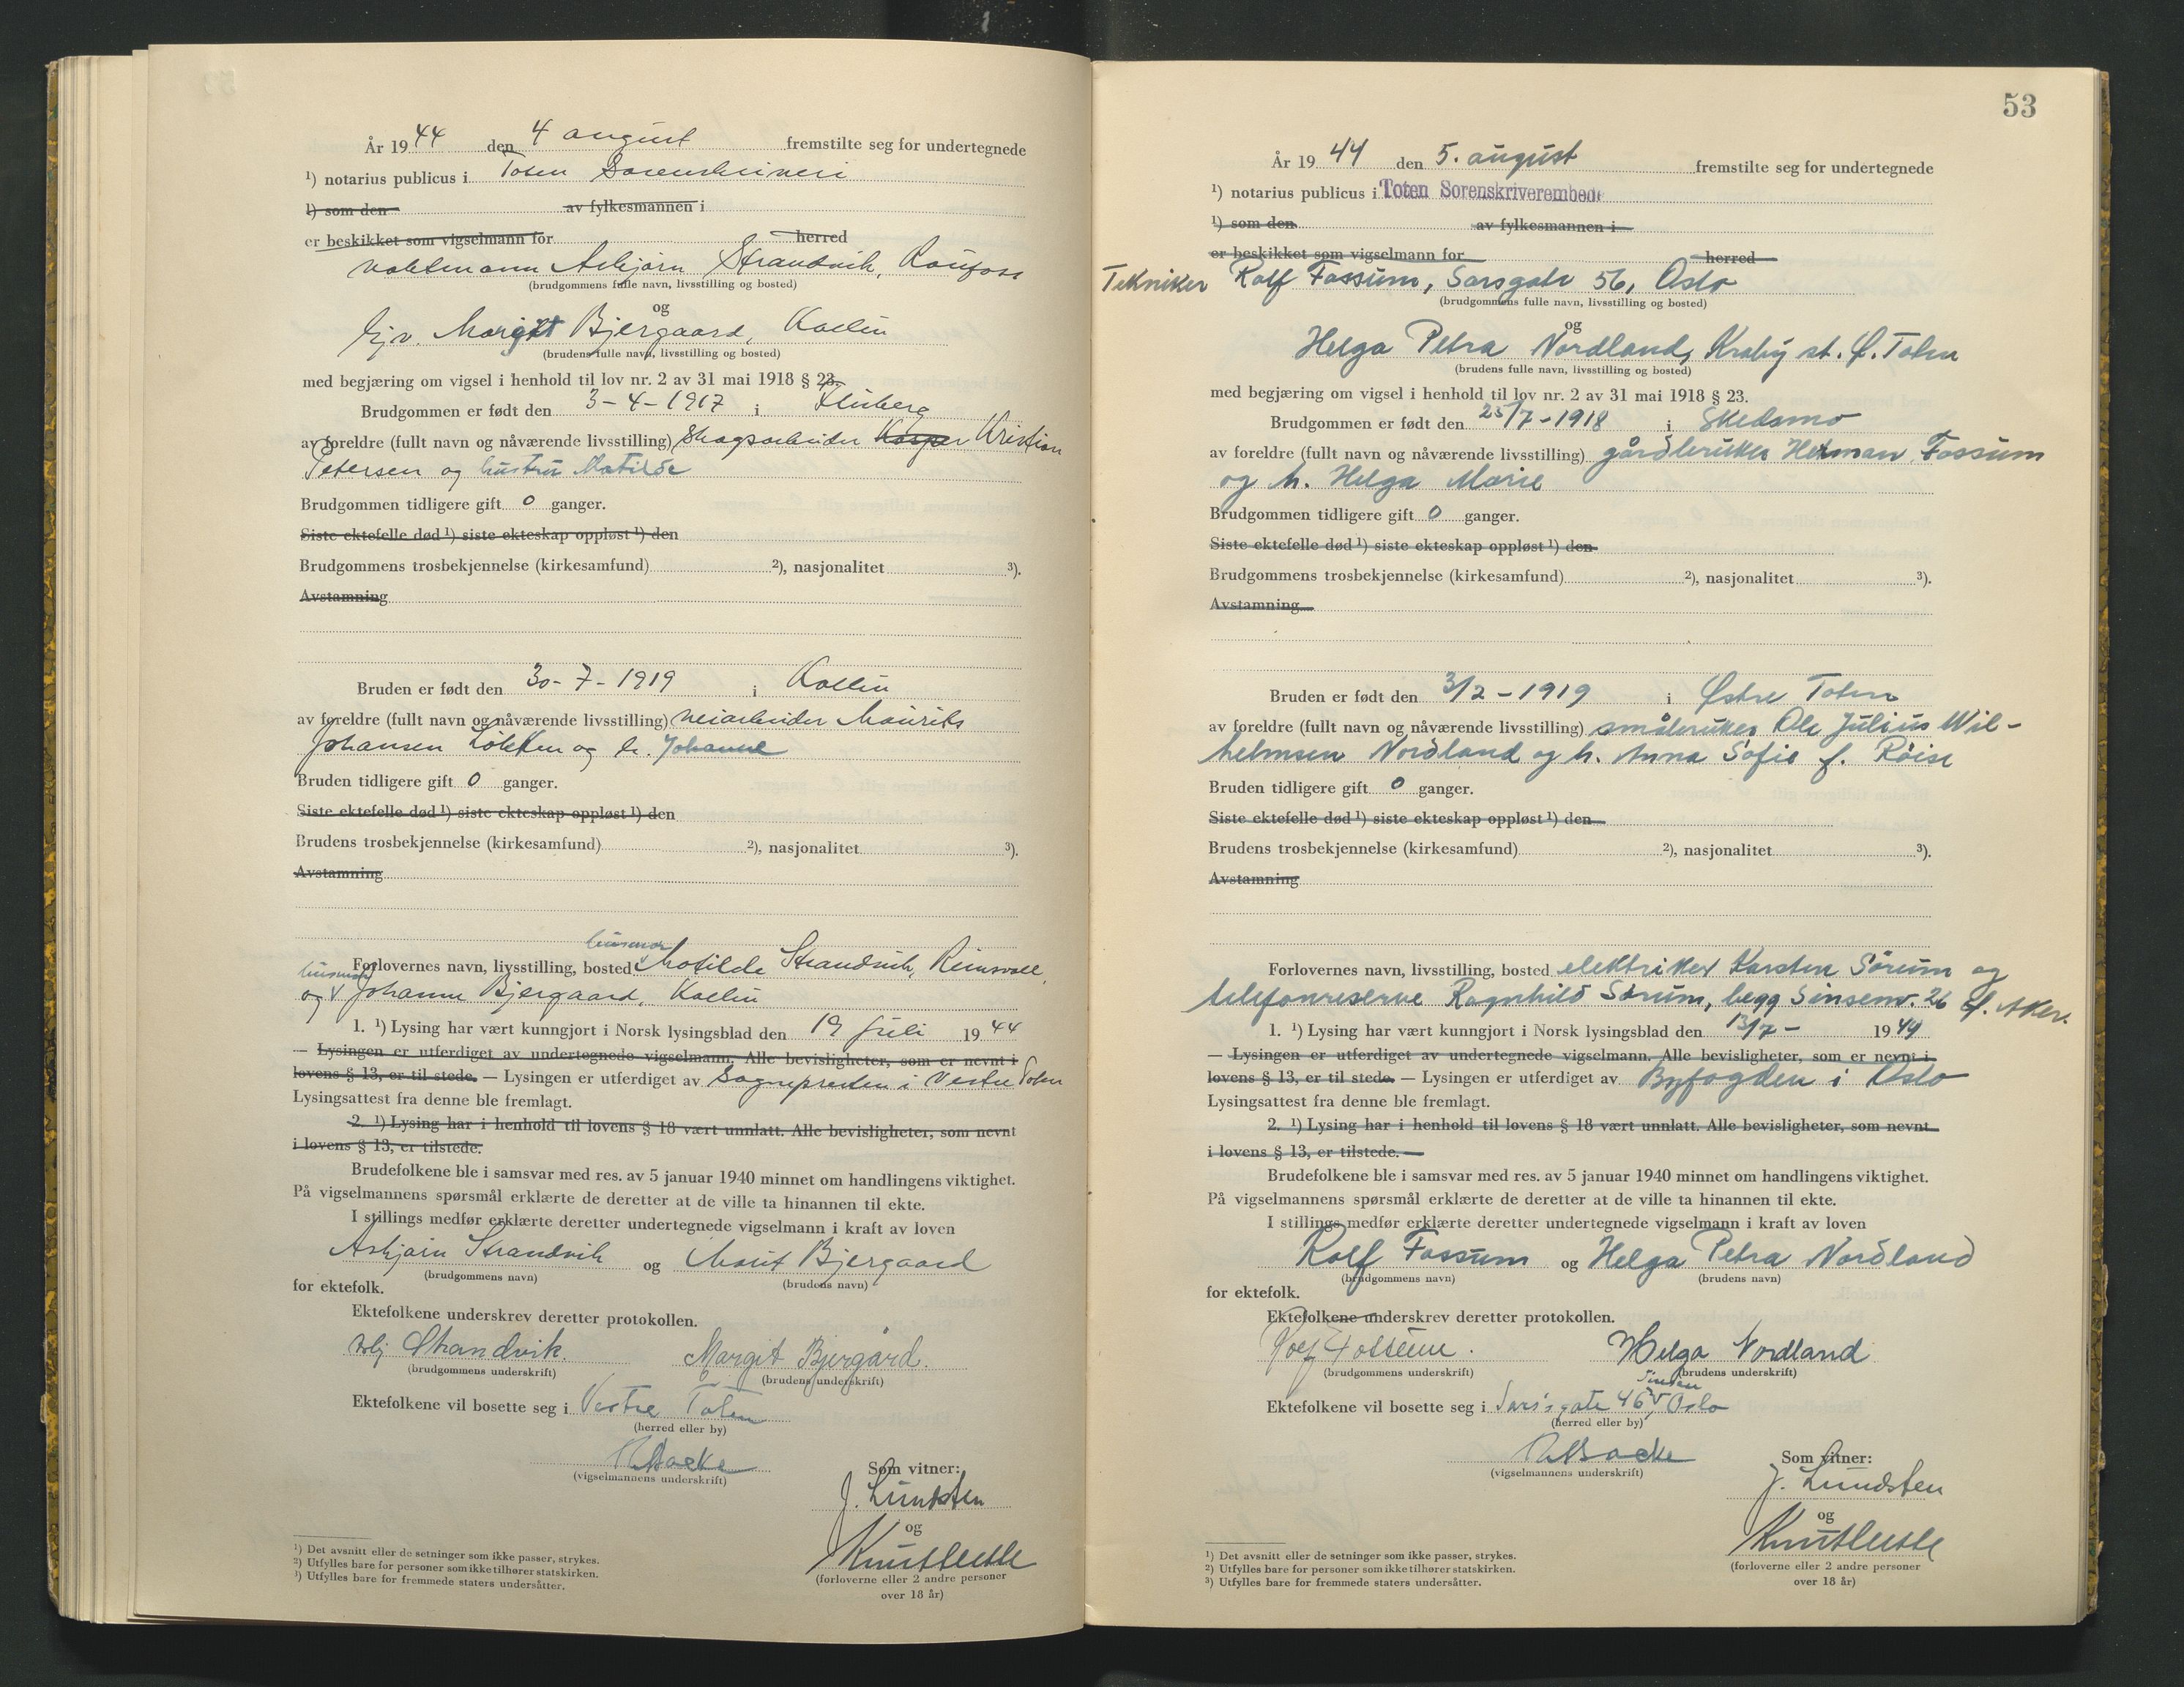 År 1944 den 4 august fremstilte seg for undertegnede
¹) notarius publicus i Toten Sorenskriveri
¹) som den av fylkesmannen i
er beskikket som vigselmann for herred
vaktmann Asbjørn Strandvik, Raufoss
(brudgommens fulle navn, livsstilling og bosted)
og
Margit Bjergaard, Kolbu
(brudens fulle navn, livsstilling og bosted)
med begjæring om vigsel i henhold til lov nr. 2 av 31 mai 1918 § 23.
Brudgommen er født den 3-4-1917 i Fluberg
av foreldre (fullt navn og nåværende livsstilling) skogsarbeider Kasper Kristian
Petersen og hustru Matilde
Brudgommen tidligere gift 0 ganger.
Siste ektefelle død ¹) siste ekteskap oppløst ¹) den
Brudgommens trosbekjennelse (kirkesamfund) ²), nasjonalitet ³).
Avstamning
Bruden er født den 30-7-1919 i Kolbu
av foreldre (fullt navn og nåværende livsstilling) veiarbeider Maurits
Johansen Løkken og h. Johanne
Bruden tidligere gift 0 ganger.
Siste ektefelle død ¹) siste ekteskap oppløst ¹) den
Brudens trosbekjennelse (kirkesamfund) ²), nasjonalitet ³).
Avstamning
husmor
Forlovernes navn, livsstilling, bosted Matilde Strandvik, Reinsvoll,
husmor
og Johanne Bjergaard, Kolbu
1. ¹) Lysing har vært kunngjort i Norsk lysingsblad den 19 juli 1944
— Lysingen er utferdiget av undertegnede vigselmann. Alle bevisligheter, som er nevnt i
lovens § 13, er til stede. — Lysingen er utferdiget av Sognepresten i Vestre Toten
Lysingsattest fra denne ble fremlagt.
2. ¹) Lysing har i henhold til lovens § 18 vært unnlatt. Alle bevisligheter, som nevnt
i lovens § 13, er tilstede.
Brudefolkene ble i samsvar med res. av 5 januar 1940 minnet om handlingens viktighet.
På vigselmannens spørsmål erklærte de deretter at de ville ta hinannen til ekte.
I stillings medfør erklærte deretter undertegnede vigselmann i kraft av loven
Asbjørn Strandvik og Marit Bjergaard
(brudgommens navn) (brudens navn)
for ektefolk.
Ektefolkene underskrev deretter protokollen.
Asbj Strandvik. Margit Bjergård.
(brudgommens underskrift) (brudens underskrift)
Ektefolkene vil bosette seg i Vestre Toten
(herred eller by)
(vigselmannens underskrift)
Som vitner:
J. Lundsten
og
(forloverne eller 2 andre personer
over 18 år)
¹) Det avsnitt eller de setninger som ikke passer, strykes.
²) Utfylles bare for personer som ikke tilhører statskirken.
³) Utfylles bare for fremmede staters undersåtter.
53
År 1944 den 5. august fremstilte seg for undertegnede
¹) notarius publicus i Toten Sorenskriverembede
¹) som den av fylkesmannen i
er beskikket som vigselmann for herred
Tekniker Rolf Fossum, Sarsgate 56, Oslo
(brudgommens fulle navn, livsstilling og bosted)
og
Helga Petra Nordland, Kraby st. Ø. Toten
(brudens fulle navn, livsstilling og bosted)
med begjæring om vigsel i henhold til lov nr. 2 av 31 mai 1918 § 23.
Brudgommen er født den 25/7-1918 i Skedsmo
av foreldre (fullt navn og nåværende livsstilling) gårdbruker Herman Fossum
og h. Helga Marie
Brudgommen tidligere gift 0 ganger.
Siste ektefelle død ¹) siste ekteskap oppløst ¹) den
Brudgommens trosbekjennelse (kirkesamfund) ²), nasjonalitet ³).
Avstamning
Bruden er født den 3/2-1919 i Østre Toten
av foreldre (fullt navn og nåværende livsstilling) småbruker Ole Julius Wil-
helmsen Nordland og h. Anna Sofie f. Røise
Bruden tidligere gift 0 ganger.
Siste ektefelle død ¹) siste ekteskap oppløst ¹) den
Brudens trosbekjennelse (kirkesamfund) ²), nasjonalitet ³).
Avstamning
Forlovernes navn, livsstilling, bosted elektriker Karsten Sørum og
telefonreserve Ragnhild Sørum, begg Sinsenv. 26 Aker.
1. ¹) Lysing har vært kunngjort i Norsk lysingsblad den 13/7- 1944
— Lysingen er utferdiget av undertegnede vigselmann. Alle bevisligheter, som er nevnt i
lovens § 13, er til stede. — Lysingen er utferdiget av Byfogden i Oslo
Lysingsattest fra denne ble fremlagt.
2. ¹) Lysing har i henhold til lovens § 18 vært unnlatt. Alle bevisligheter, som nevnt
i lovens § 13, er tilstede.
Brudefolkene ble i samsvar med res. av 5 januar 1940 minnet om handlingens viktighet.
På vigselmannens spørsmål erklærte de deretter at de ville ta hinannen til ekte.
I stillings medfør erklærte deretter undertegnede vigselmann i kraft av loven
Rolf Fossum og Helga Petra Nordland
(brudgommens navn) (brudens navn)
for ektefolk.
Ektefolkene underskrev deretter protokollen.
Rolf Fossum. Helga Nordland
(brudgommens underskrift) (brudens underskrift)
Ektefolkene vil bosette seg i Sarsgate 46, Oslo
(herred eller by)
(vigselmannens underskrift)
Som vitner:
J. Lundsten
og
(forloverne eller 2 andre personer
over 18 år)
¹) Det avsnitt eller de setninger som ikke passer, strykes.
²) Utfylles bare for personer som ikke tilhører statskirken.
³) Utfylles bare for fremmede staters undersåtter.